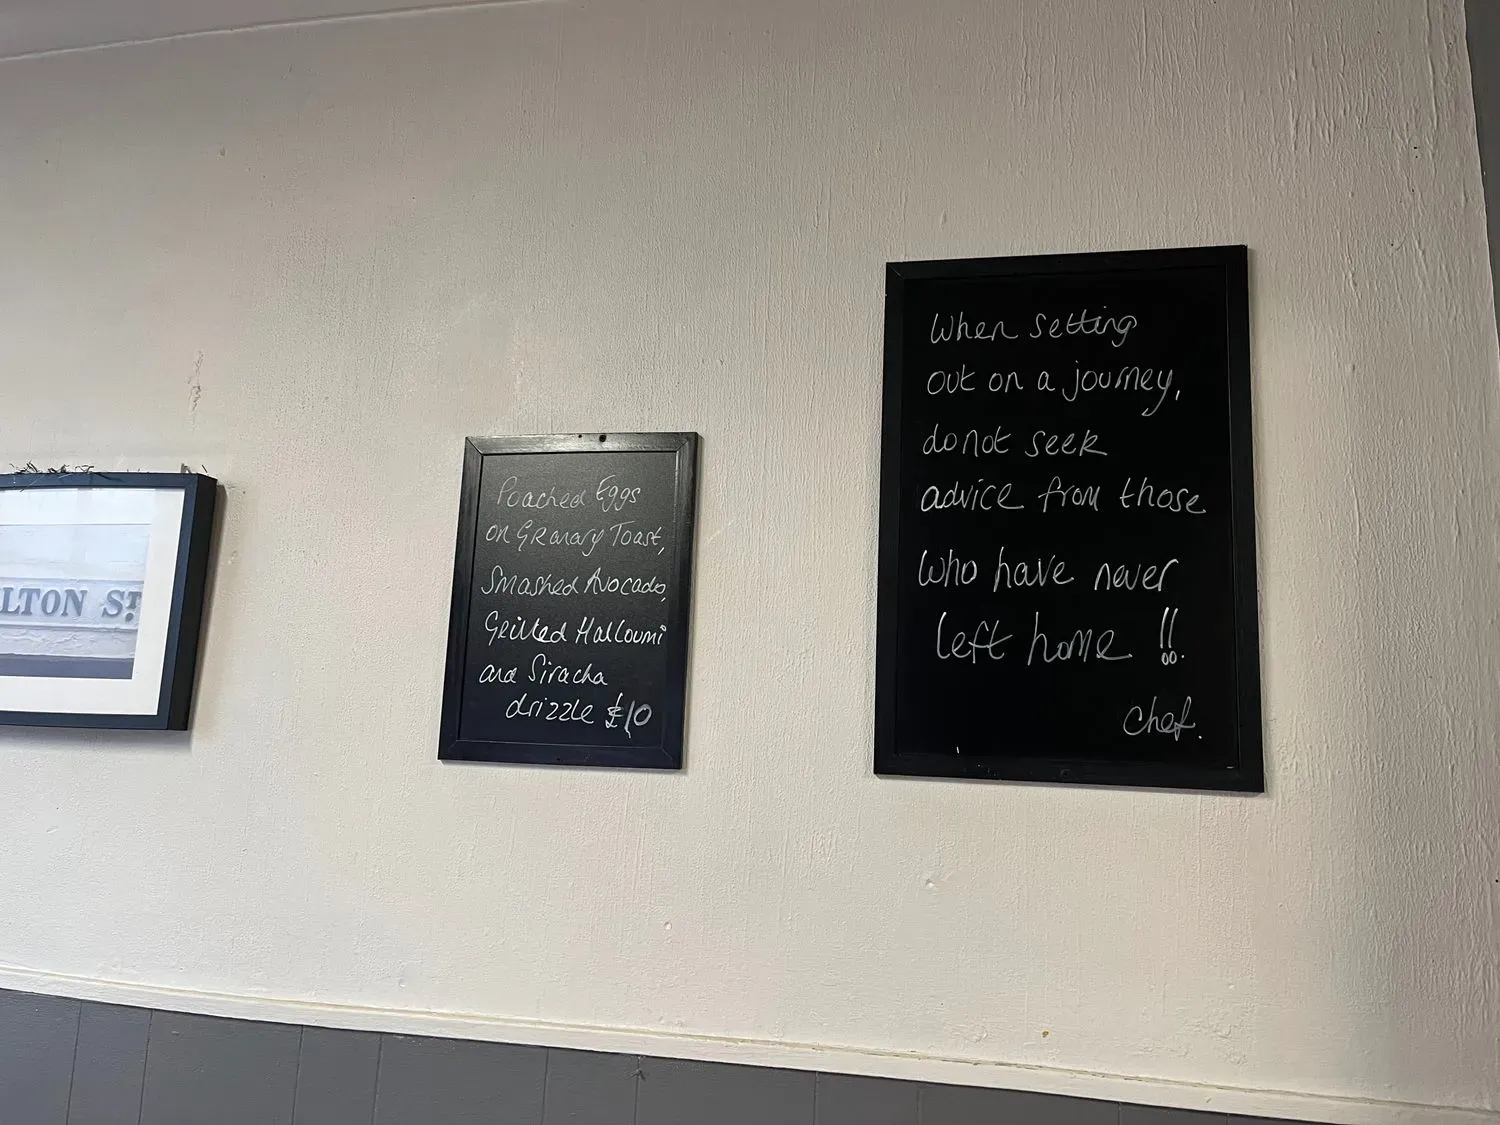 LTON ST.
Poached Eggs
on Granary Toast,
Smashed Avocado,
Grilled Halloumi
and Siracha
drizzle £10
When setting
out on a journey,
do not seek
advice from those
who have never
left home !!
Chef.